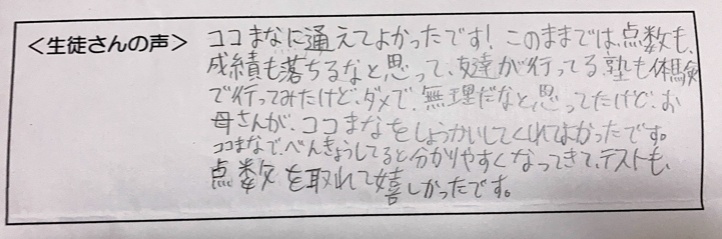 <生徒さんの声> ココまなに通えてよかったです！このままでは、点数も、
成績も落ちるなと思って、友達が行ってる、塾も体験
で行ってみたけど、ダメで、無理だなと思ってたけど、お
母さんが、ココまなをしょうかいしてくれてよかったです。
ココまなで、べんきょうしてると分かりやすくなってきて、テストも、
点数を取れて嬉しかったです。